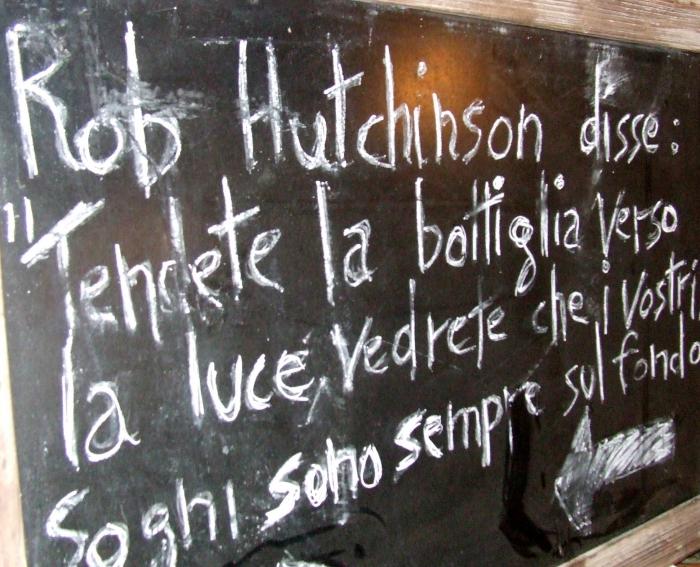 Rob Hutchinson disse:
"Tendete la bottiglia verso
la luce, vedrete che i vostri
soghi sono sempre sul fondo